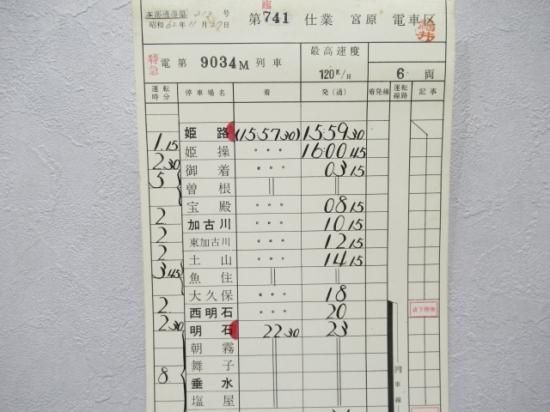 本部通達第 号
昭和62年11月 日
臨
第741仕業 宮原電車区
特急 電第 9034M 列車
最高速度
120K/H
6 両
運転時分 停車場名 着 発(通) 着発線 運転線路 記事
姫路 (15:57 30) 15:59 30
1.15
姫操 ・・・ 16:00 45
2.30
御着 ・・・ 03 15
5
曽根 || ||
宝殿 ・・・ 08 15
2
加古川 ・・・ 10 15
2
東加古川 ・・・ 12 15
2
土山 ・・・ 14 15
3.45
魚住 || ||
大久保 ・・・ 18
2
西明石 ・・・ 20
2.30
明石 22 30 23
朝霧 || ||
舞子 || ||
8
垂水 || ||
塩屋 || ||
列車線